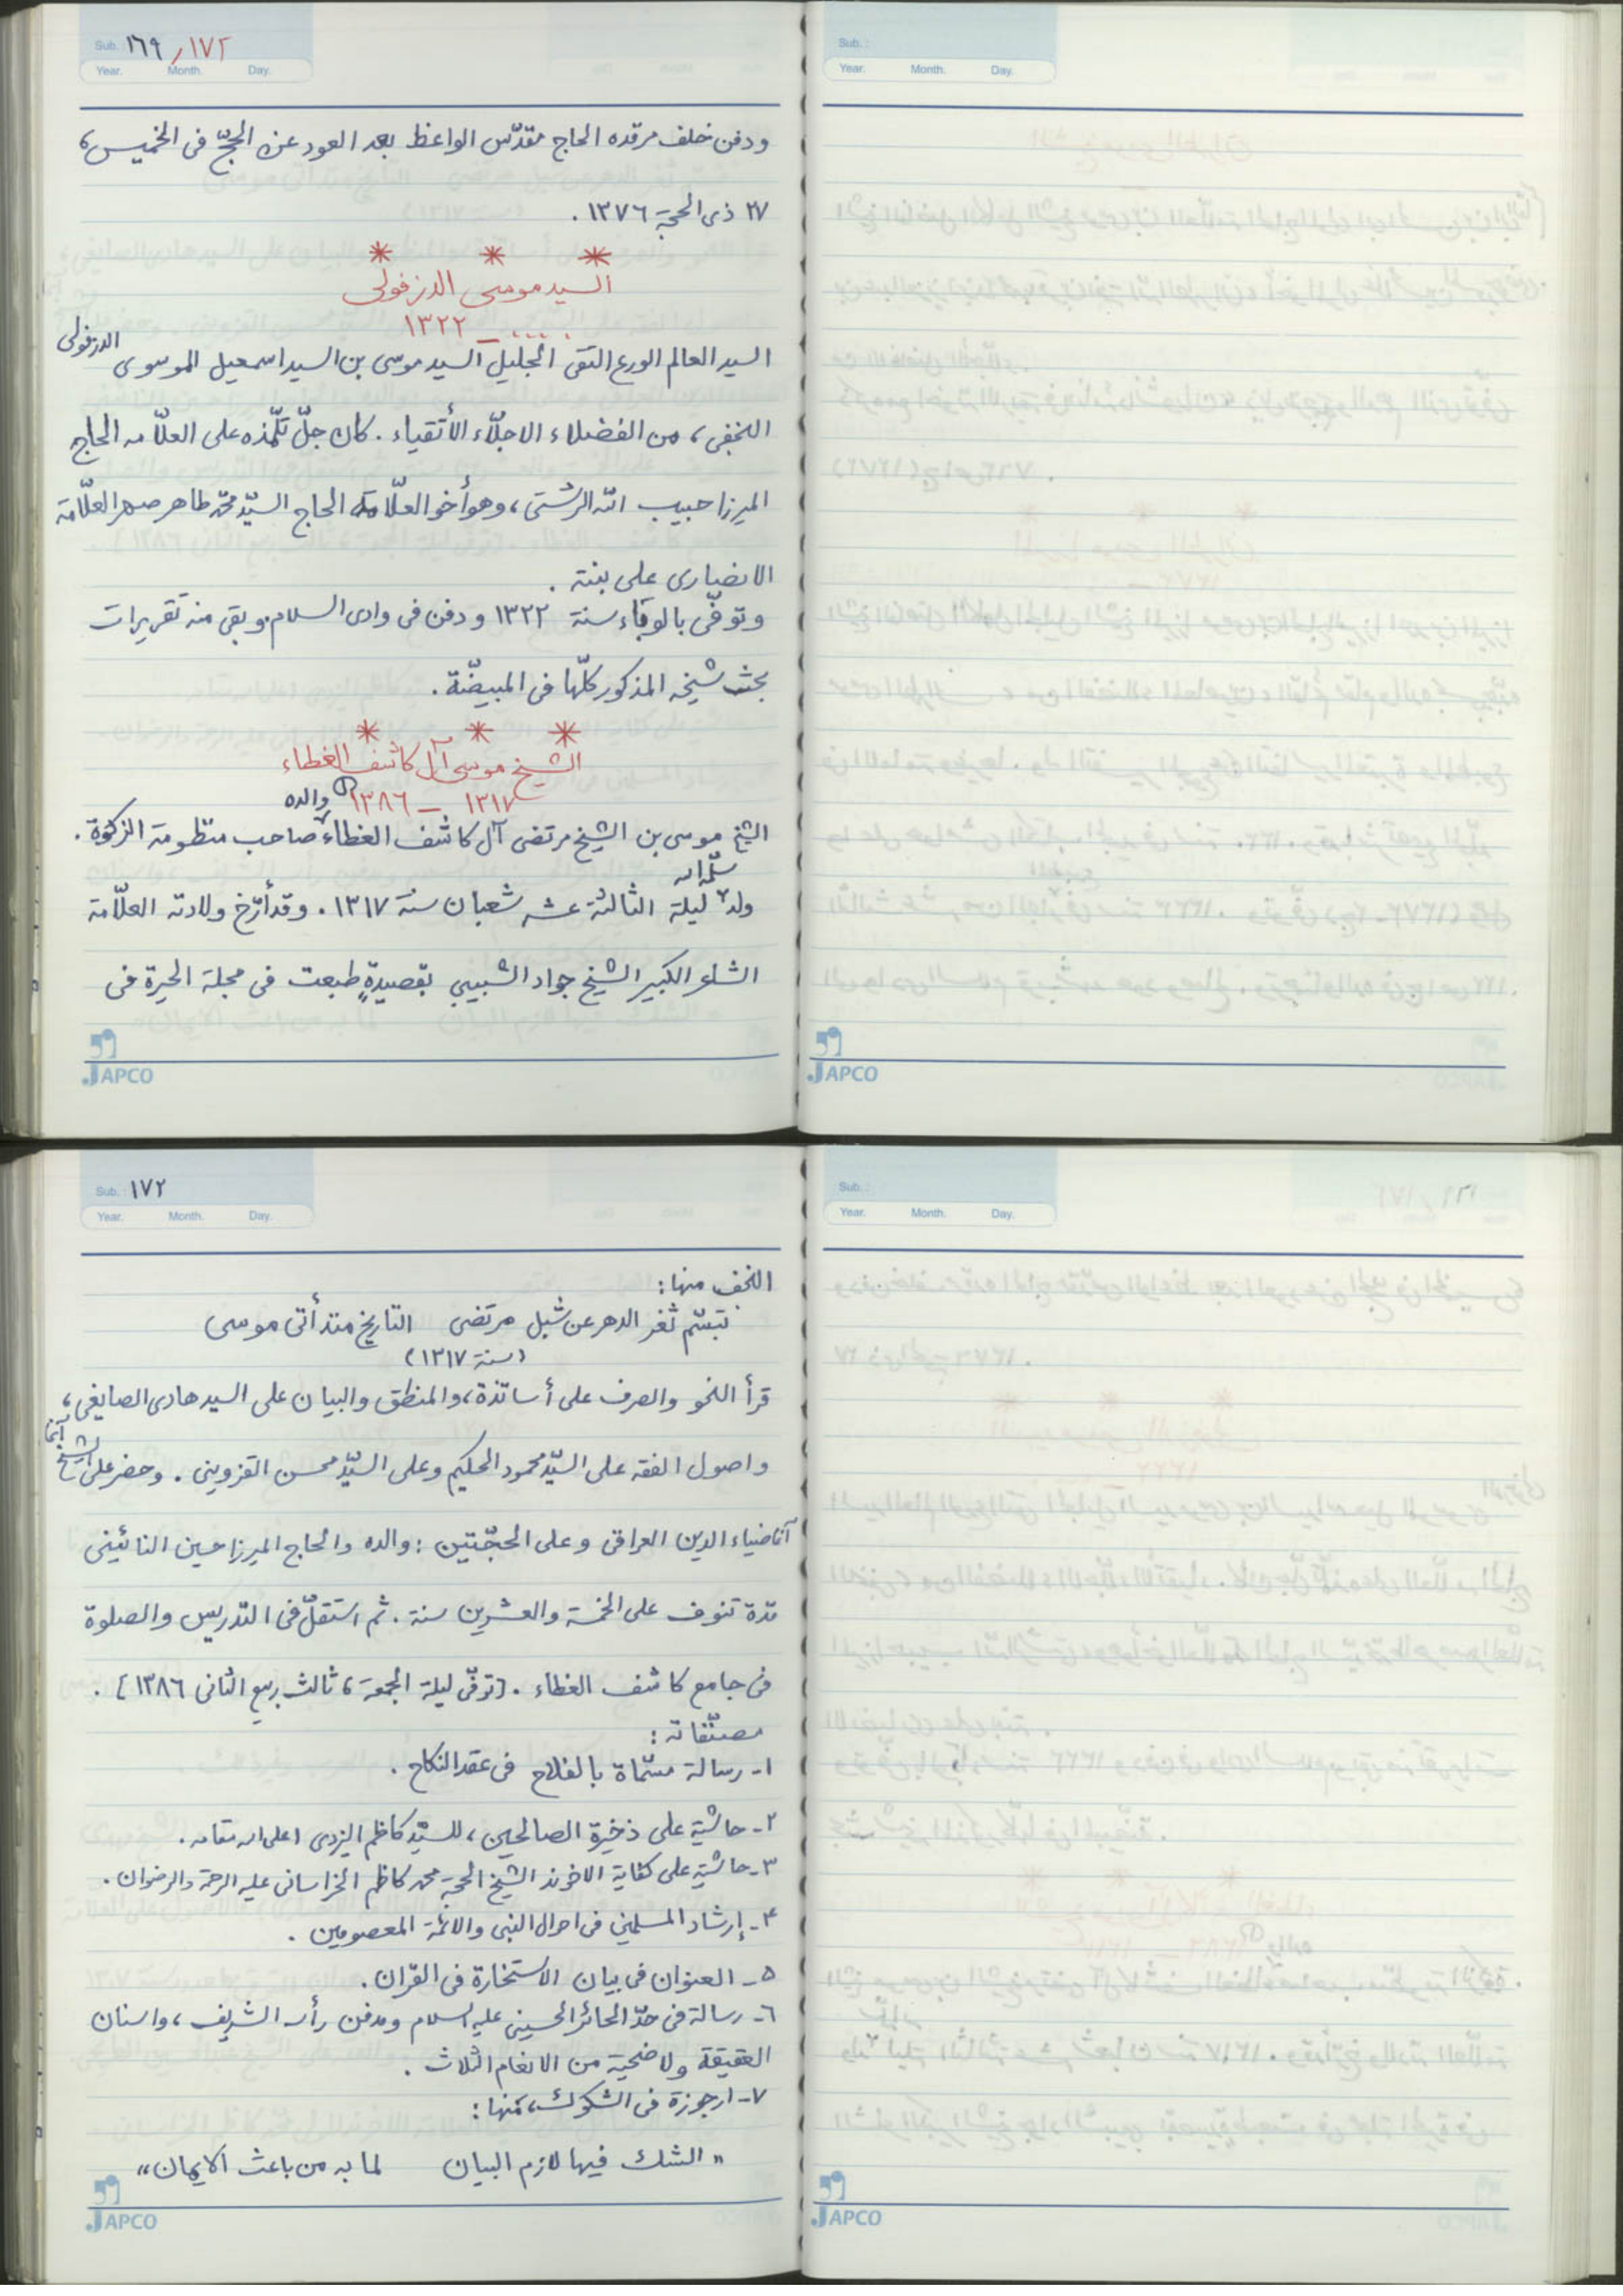 Sub. ١٦٩/١٧٢
Year. Month. Day.
ودفن خلف مرقده الحاج مقدّس الواعظ بعد العود عن الحجّ فى الخميس،
٢٧ ذى الحجة ١٣٧٦ .
* * *
السيد موسى الدزفولى
.... – ١٣٢٢
السيد العالم الورع التقى الجليل السيد موسى بن السيد اسمعيل الموسوى الدزفولى
النجفى، من الفضلاء الاجلّاء الأتقياء . كان جلّ تلمّذه على العلّامه الحاج
الميرزا حبيب الله الرشتى، وهو أخو العلّامة الحاج السيّد محمّد طاهر صهر العلّامة
الانصارى على بنته .
وتوفّى بالوباء سنة ١٣٢٢ ودفن فى وادى السلام. وبقى منه تقريرات
بحث شيخه المذكور كلّها فى المبيضّة .
* * *
الشيخ موسى آل كاشف الغطاء
١٣١٧ – ١٣٨٦
الشيخ موسى بن الشيخ مرتضى آل كاشف الغطاء والده صاحب منظومة الزكوة .
ولد سلّمه الله ليلة الثالثة عشر شعبان سنة ١٣١٧ . وقد أرّخ ولادته العلّامة
الشاعر الكبير الشيخ جواد الشبيبي بقصيدةٍ طبعت فى مجلة الحيرة فى
JAPCO
Sub. :
Year. Month. Day.
JAPCO
Sub. : ١٧٢
Year. Month. Day.
النجف منها :
تبسّم ثغر الدهر عن شبل مرتضى التاريخ منذ أتى موسى
(سنة ١٣١٧)
قرأ النحو والصرف على أساتذة، والمنطق والبيان على السيد هادى الصايغى،
واصول الفقه على السيّد محمود الحكيم وعلى السيّد محسن القزوينى . وحضر على الشيخ
آقا ضياء الدين العراقى وعلى الحجّتين : والده والحاج الميرزا حسين النائينى
مدة تنوف على الخمسة والعشرين سنة . ثم استقلّ فى التدريس والصلوة
فى جامع كاشف الغطاء . [توفّى ليلة الجمعة، ثالث ربيع الثانى ١٣٨٦] .
مصنّفاته :
١- رسالة مسمّاة بالفلاح فى عقد النكاح .
٢- حاشية على ذخيرة الصالحين، للسيّد كاظم اليزدى اعلى الله مقامه .
٣- حاشية على كفاية الاخوند الشيخ الحجة محمد كاظم الخراسانى عليه الرحمة والرضوان .
٤- إرشاد المسلمين فى احوال النبى والائمّة المعصومين .
٥- العنوان فى بيان الاستخارة فى القرآن .
٦- رسالة فى حدّ الحائر الحسينى عليه السلام ومدفن رأسه الشريف، واسنان
العقيقة ولاضحية من الانغام الثلاث .
٧- ارجوزة فى الشكوك، منها :
« الشك فيها لازم البيان لما به من باعث الايمان »
JAPCO
Sub. :
Year. Month. Day.
JAPCO